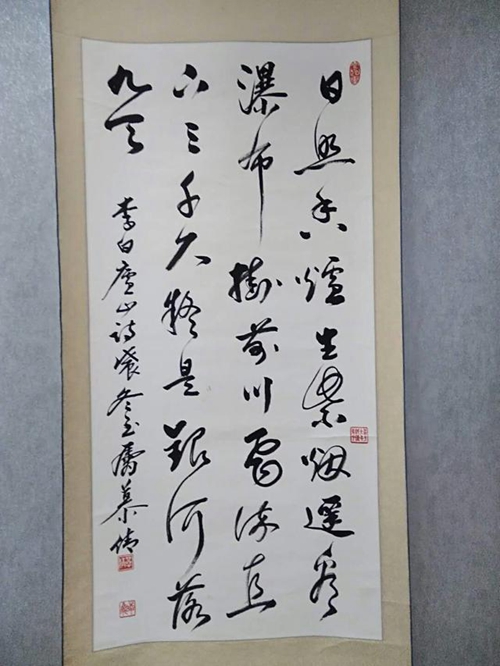 日照香爐生紫烟遥看
瀑布掛前川飛流直
下三千尺疑是銀河落
九天
李白廬山詩冬慕倩